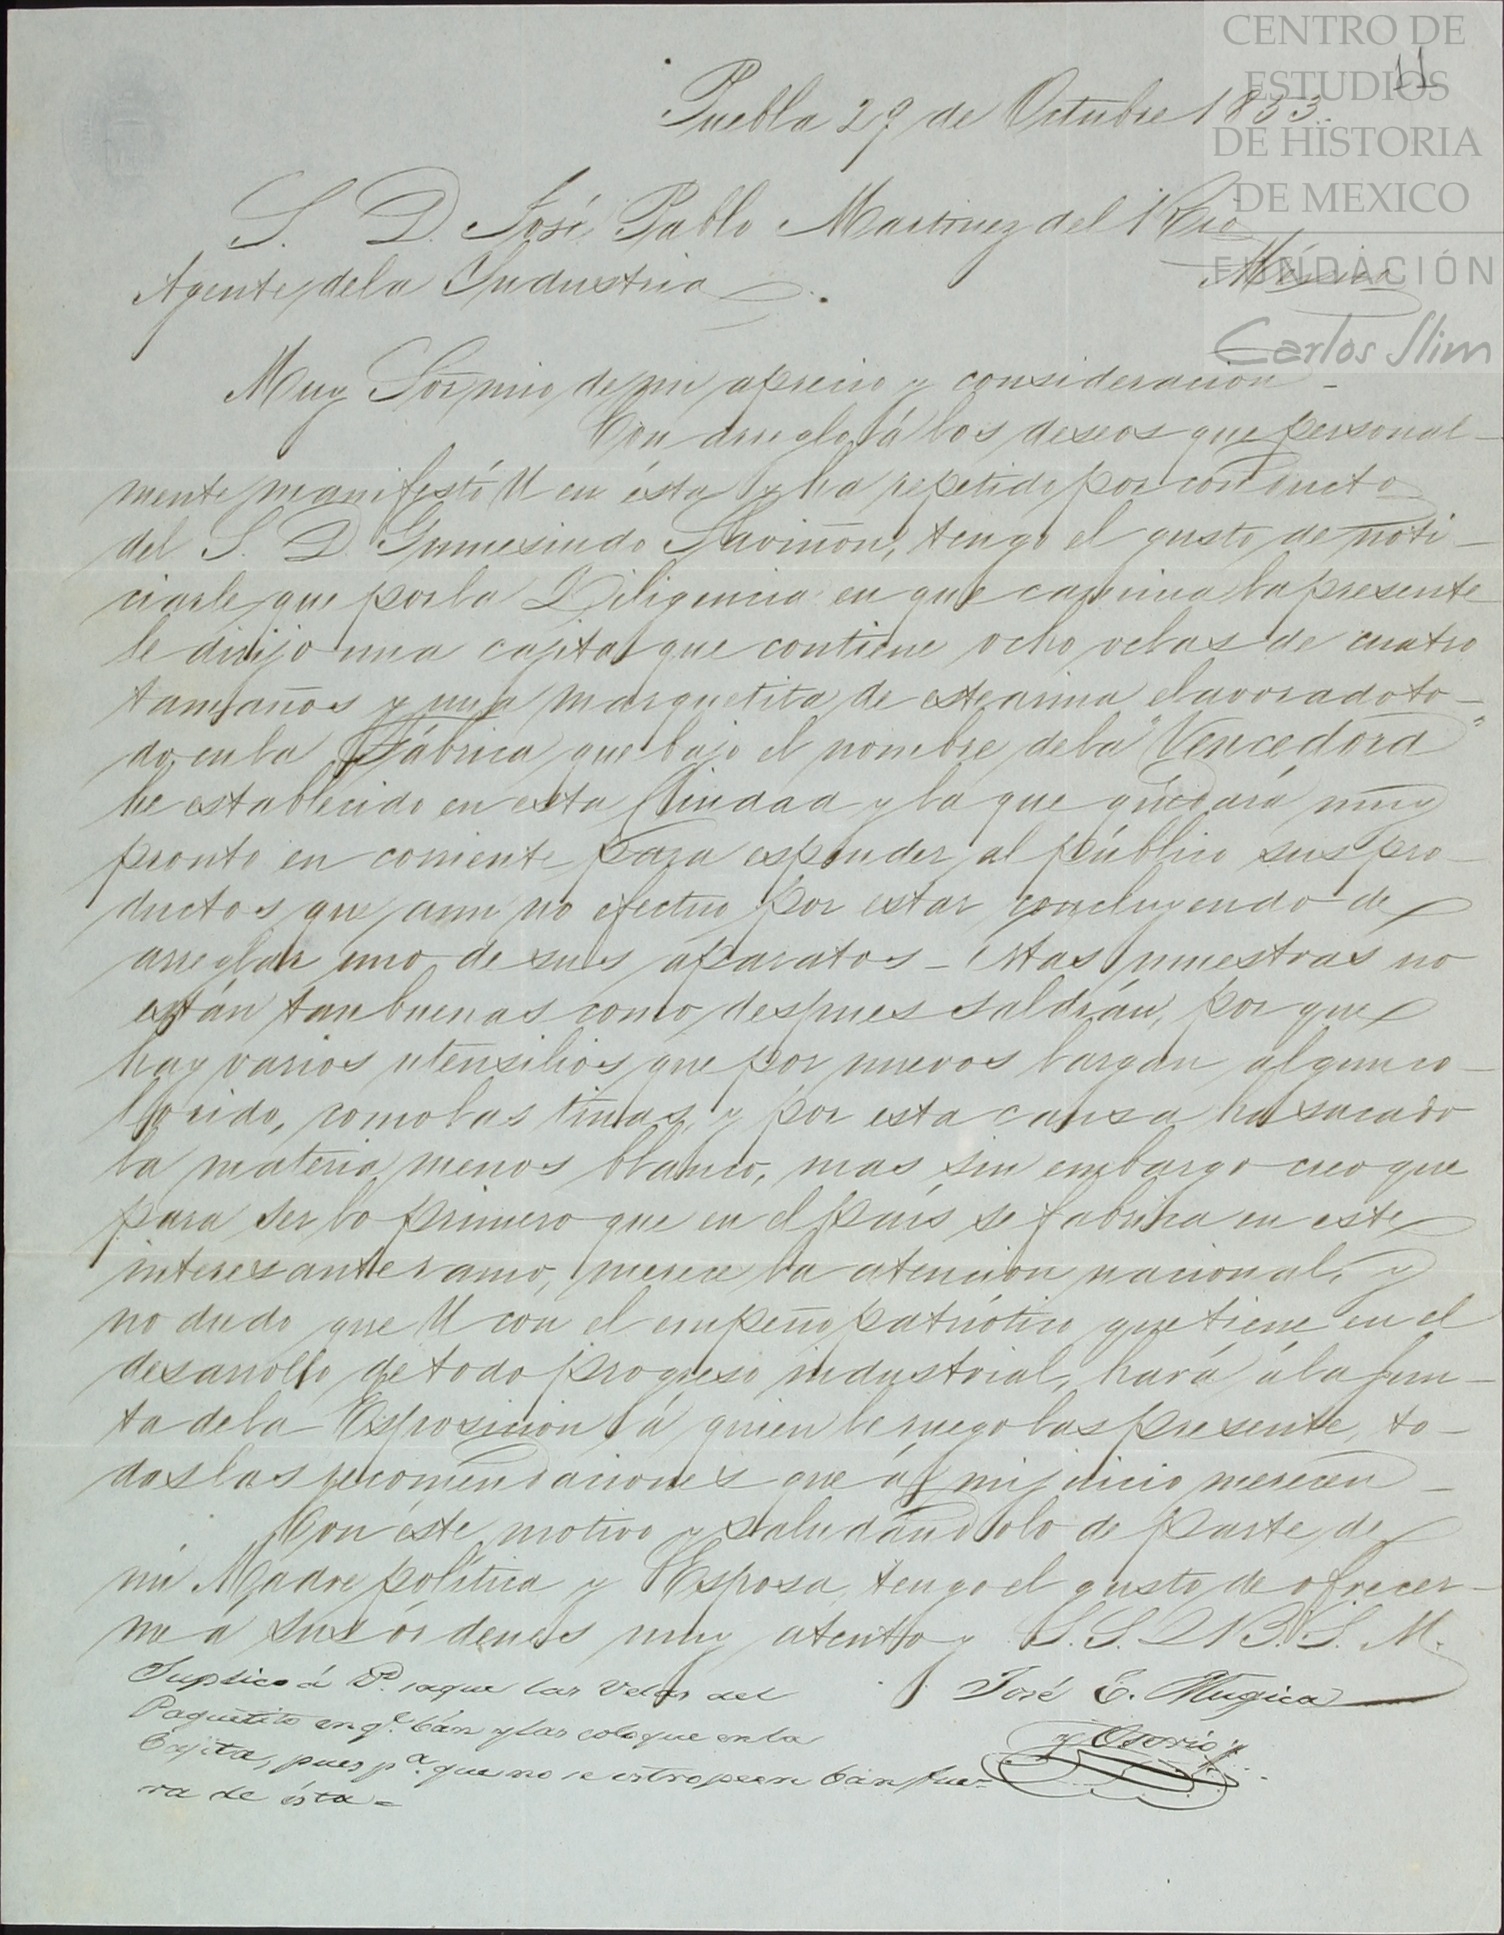 CENTRO DE
ESTUDIOS
DE HISTORIA
DE MEXICO
FUNDACIÓN
Carlos Slim
11
Puebla 29 de Octubre 1853.
S. D. José Pablo Martinez del Rio
Agente dela Industria México
Muy Sõr mio de mi aprecio y consideracion_
Con arreglo á los deseos que personal_
mente manifestó U en ésta y ha repetido por conducto
del S. D. Gumesindo Saviñon, tengo el gusto de noti_
ciarle que por la Diligencia en que camina la presente
le dirijo una cajita que contiene ocho velas de cuatro
tamaños y una marquetita de estearina elavorado to_
do en la Fábrica que bajo el nombre dela "Vencedora"
he establecido en esta Ciudad y la que quedará muy
pronto en corriente para espender al público sus pro_
ductos que aun no efectuo por estar concluyendo de
arreglar uno de sus aparatos_ Estas muestras no
están tan buenas como despues saldrán, por que
hay varios utensilios que por nuevos largan algun co_
lorido, como las tinas, y por esta causa ha sacado
la materia menos blanco, mas sin embargo creo que
para ser lo primero que en el país se fabrica en este
interesante ramo, merece la atencion nacional, y
no dudo que U con el empeño patriótico que tiene en el
desarrollo de todo progreso industrial, hará á la Jun_
ta dela Esposicion á quien le ruego las presente, to_
das las recomendaciones que á mi juicio merecen_
Con éste motivo y saludandolo de parte de
mi Madre política y Esposa, tengo el gusto de ofrecer_
me á sus órdenes muy atento y S. S. Q B. S. M.
José E. Mugica
y Osorio
Suplico á V. saque las velas del
Paquetito en q.e ván y las coloque en la
Cajita, pues p.a que no se estropeen ván fue_
ra de ésta=